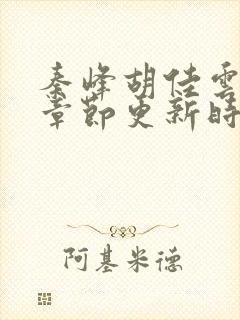 秦峰胡佳雲
章節更新時
阿基米德